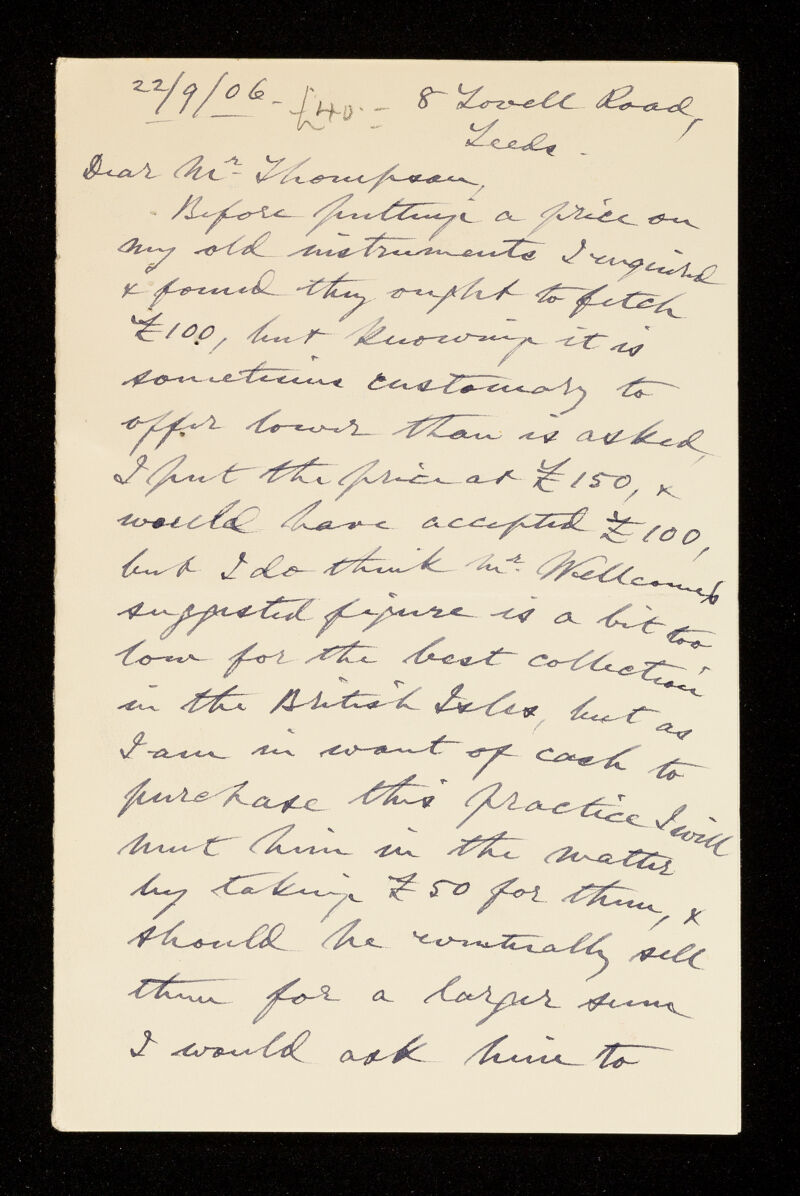 22/9/06- £40.= 8 Lovell Road,
Leeds.
Dear Mr. Thompson,
Before putting a price on
my old instruments I enquired
& found they ought to fetch
£100, but knowing it is
sometimes customary to
offer lower than is asked,
I put the price at £150, &
would have accepted £100,
but I do think Mr. Wellcome's
suggested figure is a bit too
low for the best collection
in the British Isles, but as
I am in want of cash to
purchase this practice I will
meet him in the matter
by taking £50 for them, &
should he eventually sell
them for a larger sum
I would ask him to